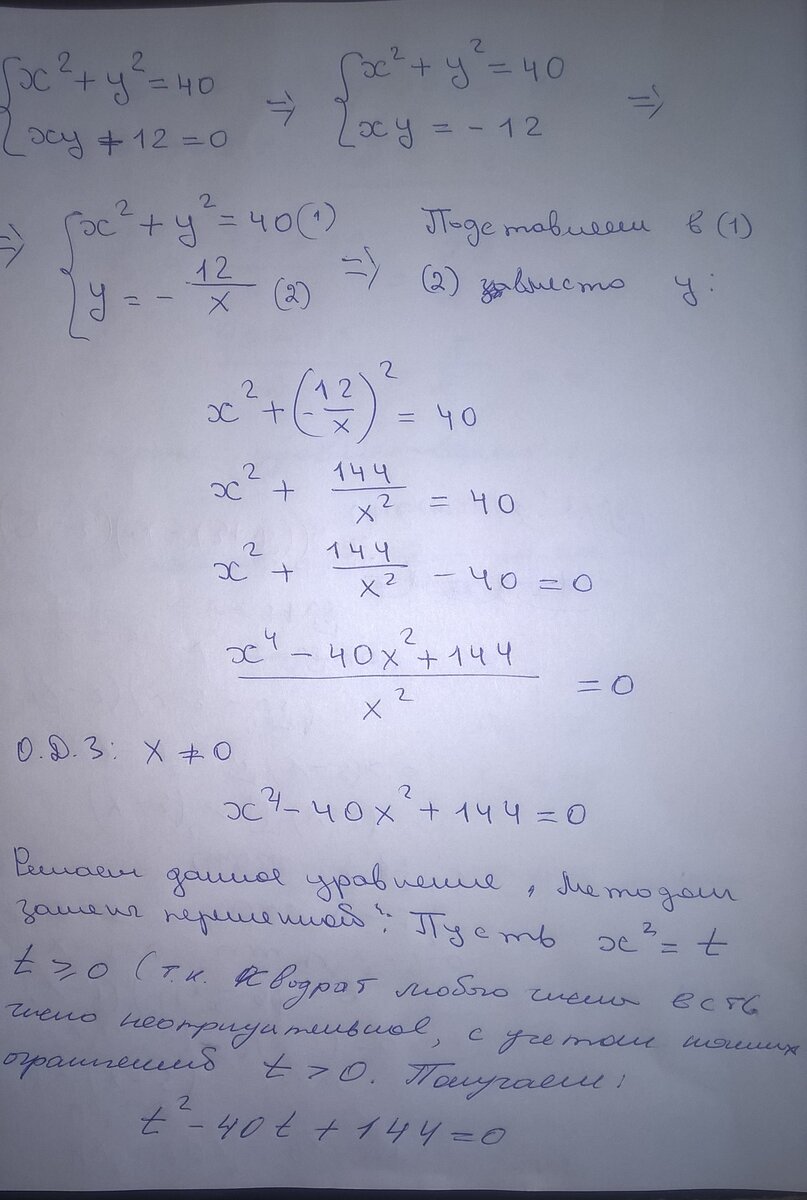 {x² + y² = 40 ⇒ {x² + y² = 40 ⇒
{xy + 12 = 0 {xy = - 12
⇒ {x² + y² = 40 (1) ⇒ Подставляем в (1)
{y = - 12/x (2) (2) вместо y:
x² + (-12/x)² = 40
x² + 144/x² = 40
x² + 144/x² - 40 = 0
(x⁴ - 40x² + 144)/x² = 0
О.Д.З: x ≠ 0
x⁴ - 40x² + 144 = 0
Решаем данное уравнение „Методом
замены переменной“: Пусть x² = t
t ≥ 0 (т.к. квадрат любого числа есть
число неотрицательное, с учетом наших
ограничений t > 0. Получаем:
t² - 40t + 144 = 0